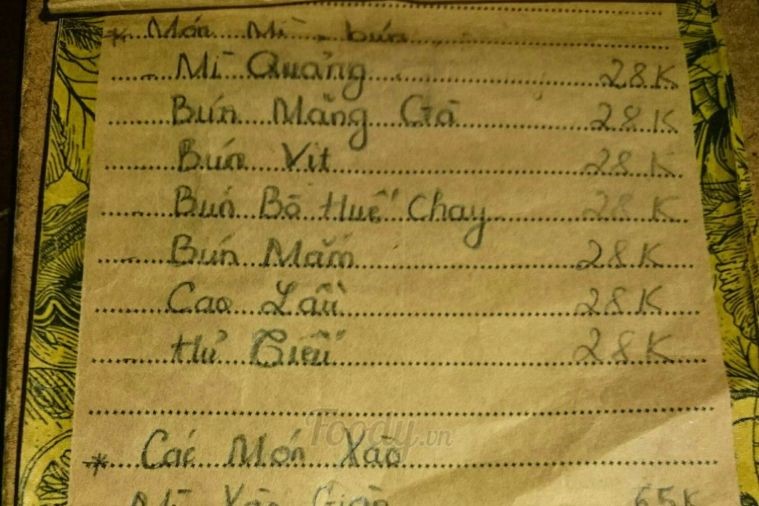 * Món Mì - bún
Mì Quảng 28K
Bún Măng Gà 28K
Bún Vịt 28K
Bún Bò Huế Chay 28K
Bún Mắm 28K
Cao Lầu 28K
Hủ Tiếu 28K
Foody.vn
* Các Món Xào
Mì Xào Giòn 65K